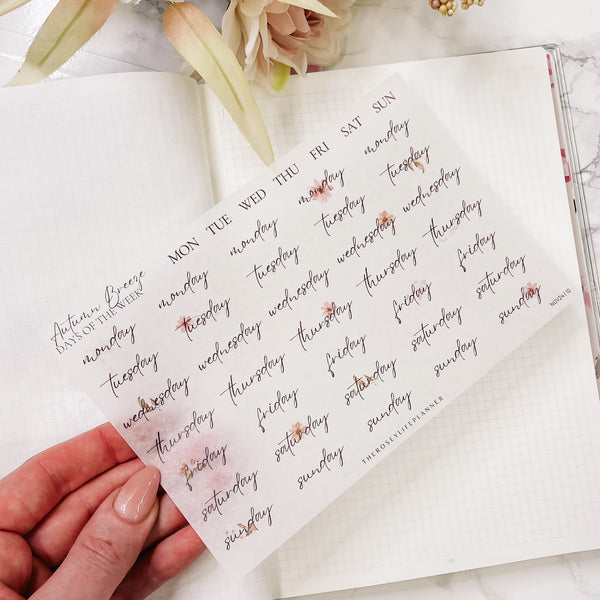 Autumn Breeze
DAYS OF THE WEEK
MON TUE WED THU FRI SAT SUN
monday monday monday monday monday
tuesday tuesday tuesday tuesday tuesday
wednesday wednesday wednesday wednesday wednesday
thursday thursday thursday thursday thursday
friday friday friday friday friday
saturday saturday saturday saturday saturday
sunday sunday sunday sunday sunday
THEROSELYLIFEPLANNER
NOV24 | 10